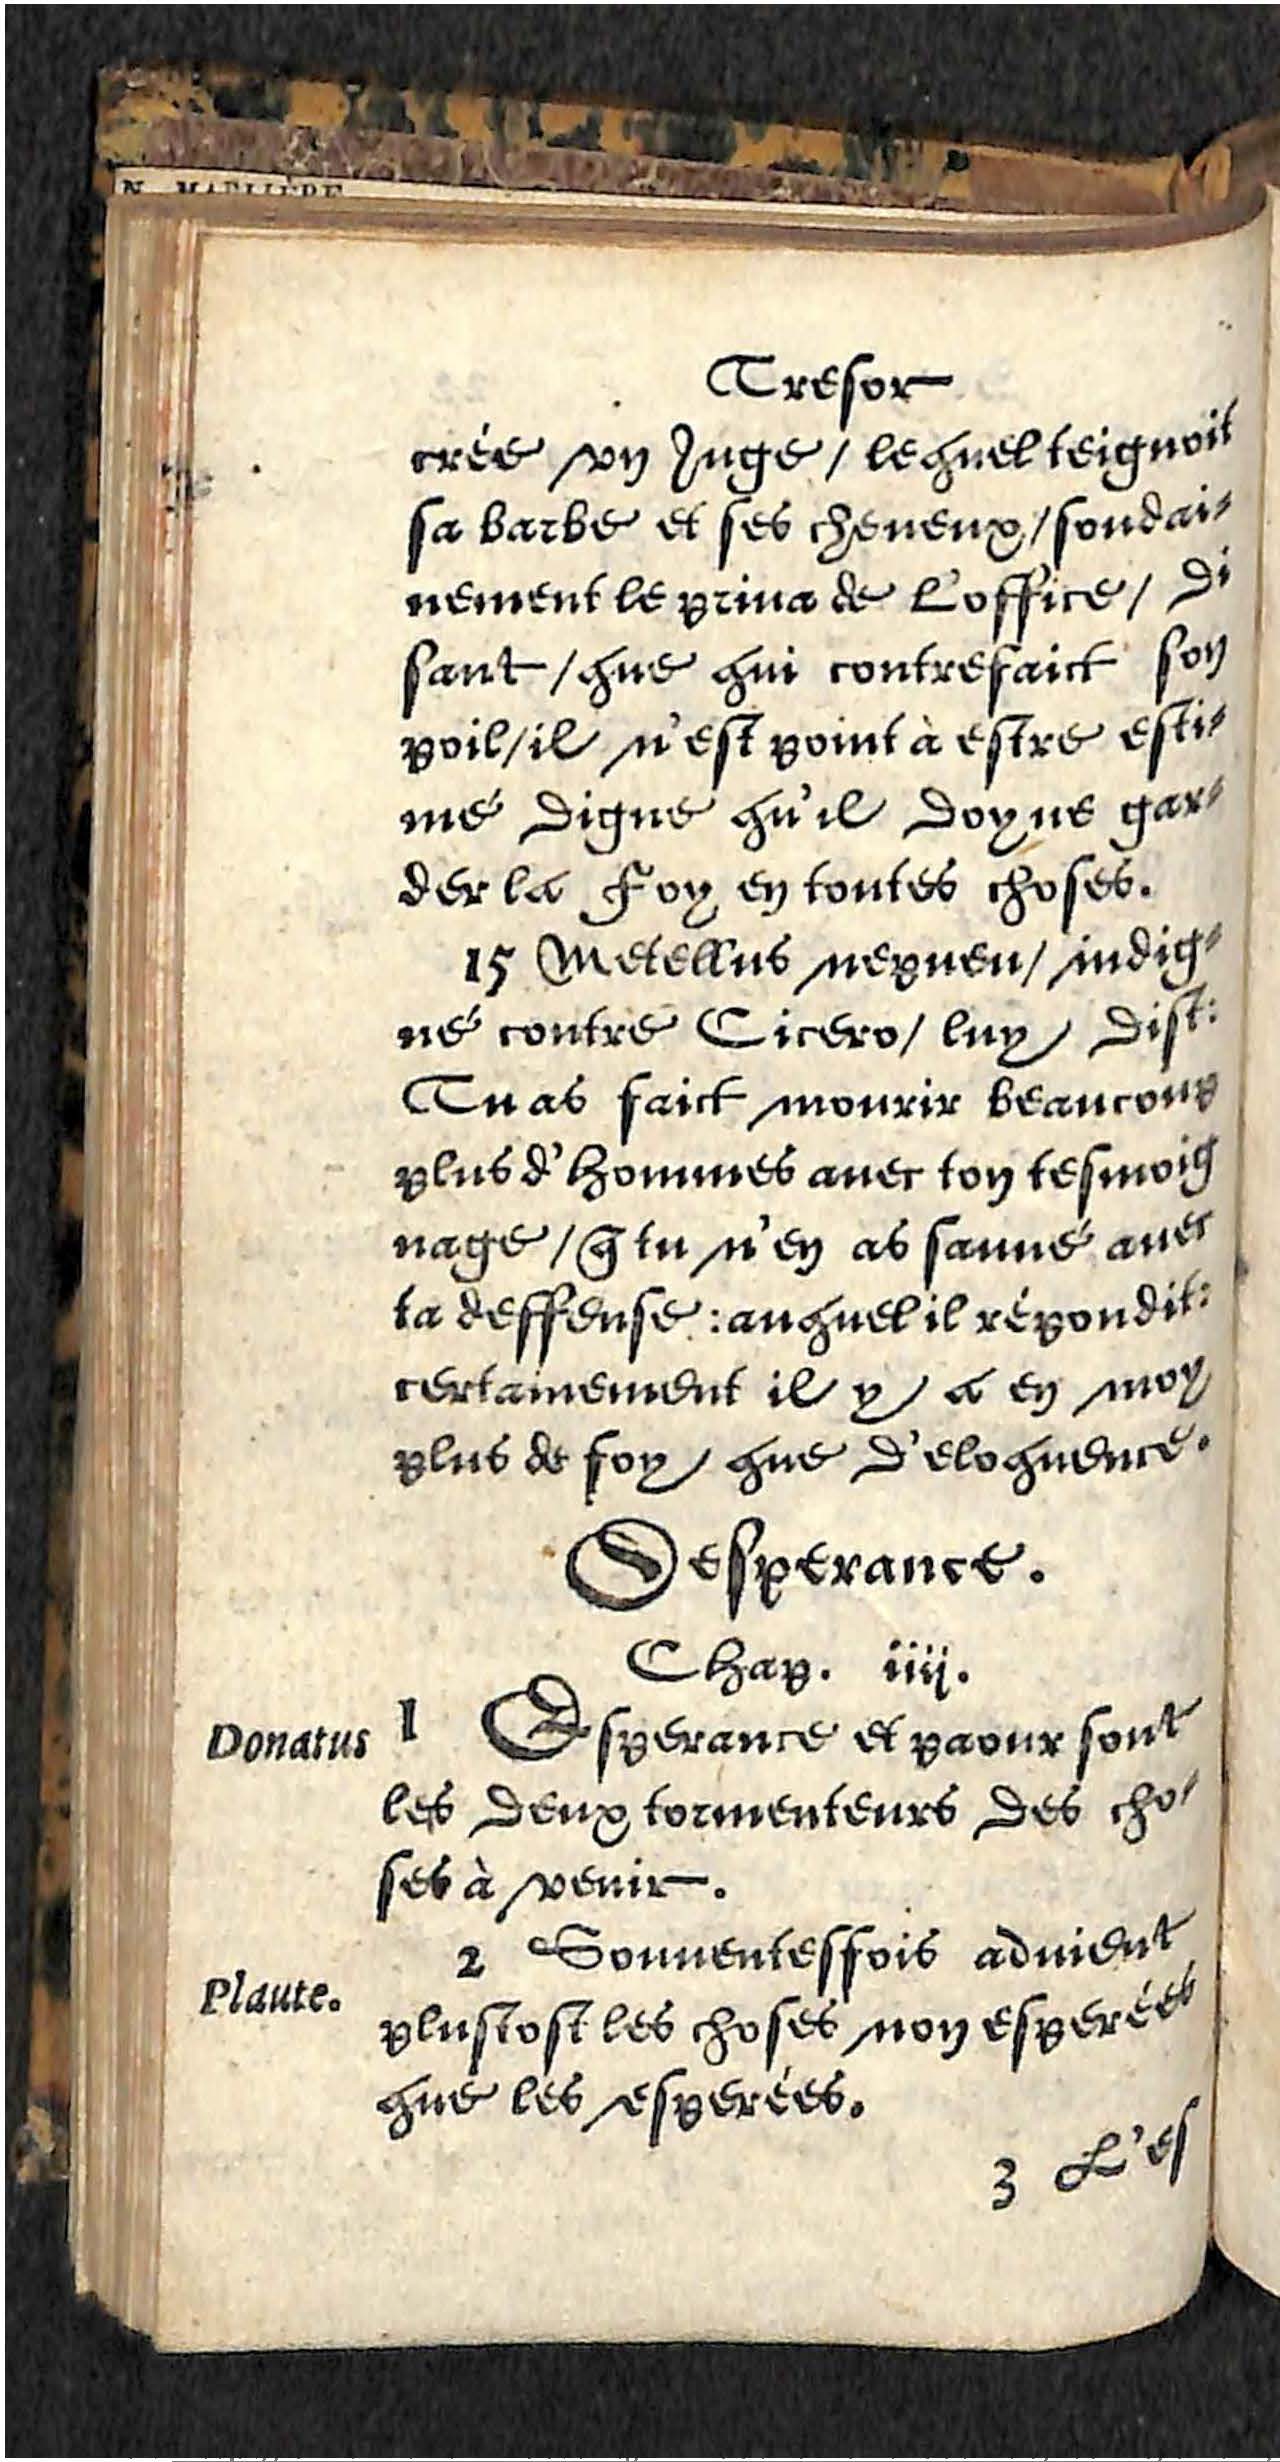 N. MAELIÈRE
Tresor
crée vn Juge / lequel teignoit
sa barbe et ses cheueux / soudai-
nement le priua de l'office / di
sant / que qui contrefaict son
poil / il n'est point à estre esti-
mé digne qu'il doyue gar-
der la Foy en toutes choses.
15 Metellus nepueu / indig-
né contre Cicero / luy dist:
Tu as faict mourir beaucoup
plus d'hommes auec ton tesmoig
nage / q̃ tu n'en as sauué auec
ta deffense : auquel il répondit:
certainement il y a en moy
plus de foy que d'eloquence.
D'esperance.
Chap. iiij.
Donatus 1 Esperance et paour sont
les deux tormenteurs des cho-
ses à venir.
2 Souuentesfois aduient
Plaute. plustost les choses non esperées
que les esperées.
3 L'es